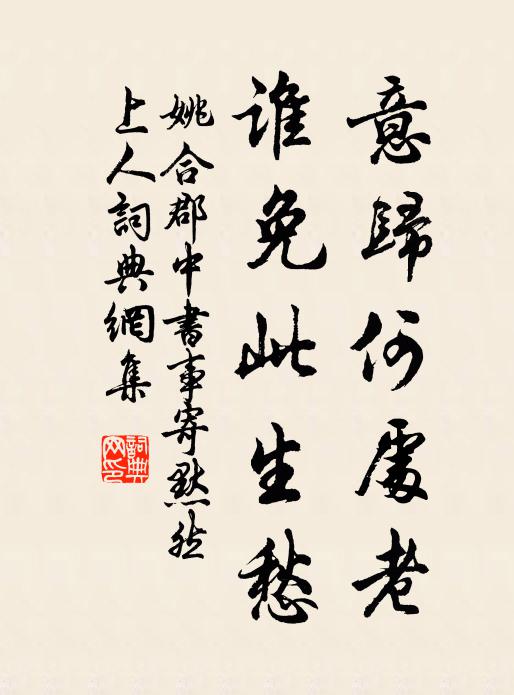 意歸何處老
誰免此生愁
姚合郡中書事寄默然
上人詞典網集
詞典
网印